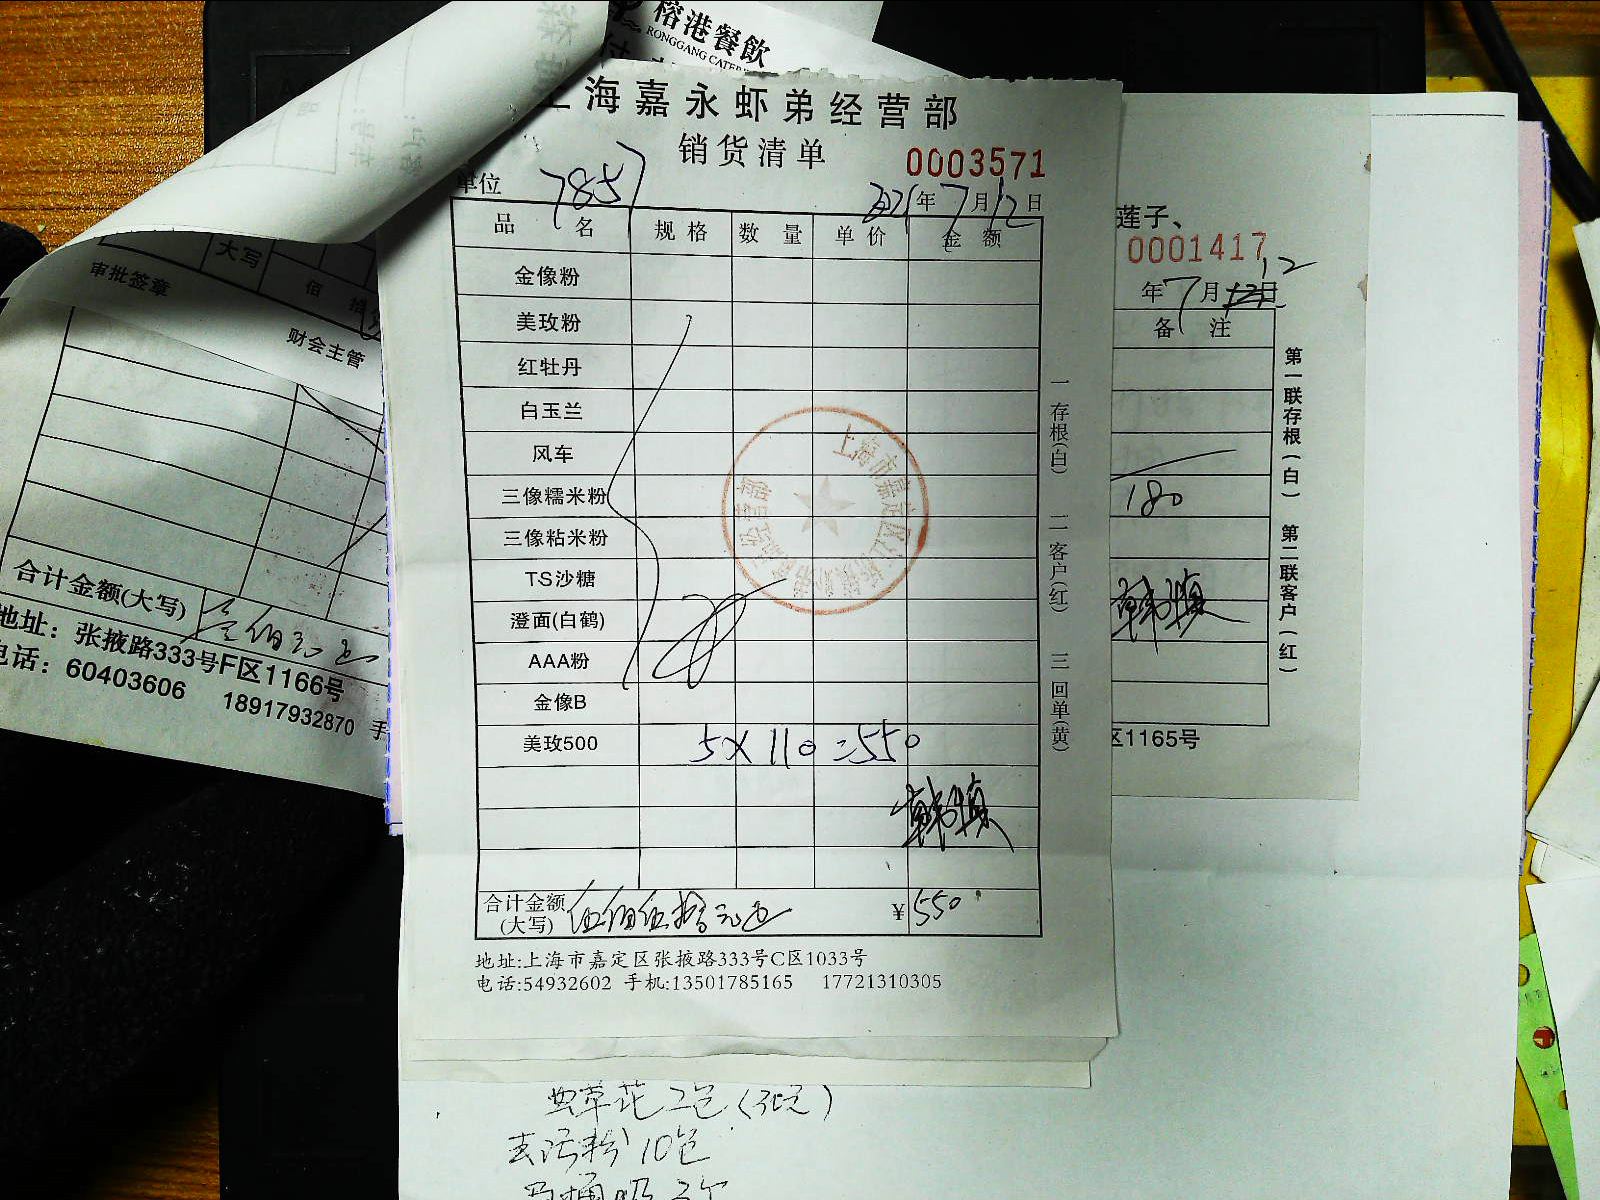 榕港餐飲
RONGGANG CATER
上海嘉永虾弟经营部
销货清单
0003571
单位 7857
2021年7月12日
品名 规格 数量 单价 金额
金像粉
美玫粉
红牡丹
白玉兰
风车
三像糯米粉
三像粘米粉
TS沙糖
澄面(白鹤)
AAA粉
金像B
美玫500 5×110=550
合计金额(大写) 伍佰伍拾元正 ¥550
地址:上海市嘉定区张掖路333号C区1033号
电话:54932602 手机:13501785165 17721310305
一存根(白) 二客户(红) 三回单(黄)
莲子、
0001417
年7月12日
备注
180
第一联存根(白) 第二联客户(红)
区1165号
大写
审批签章
佰
财会主管
合计金额(大写)
地址：张掖路333号F区1166号
电话：60403606 18917932870 手
虫草花2包
去污粉10包